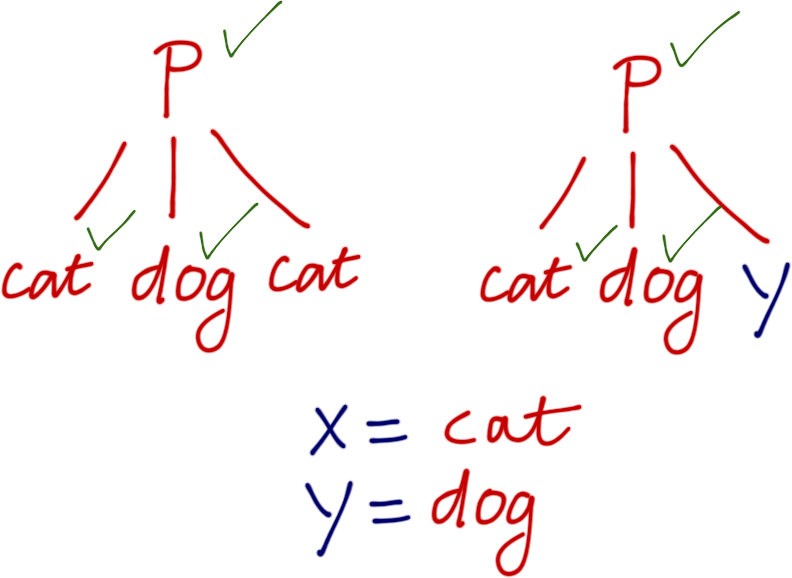 P P
cat dog cat cat dog Y
X = cat
Y = dog